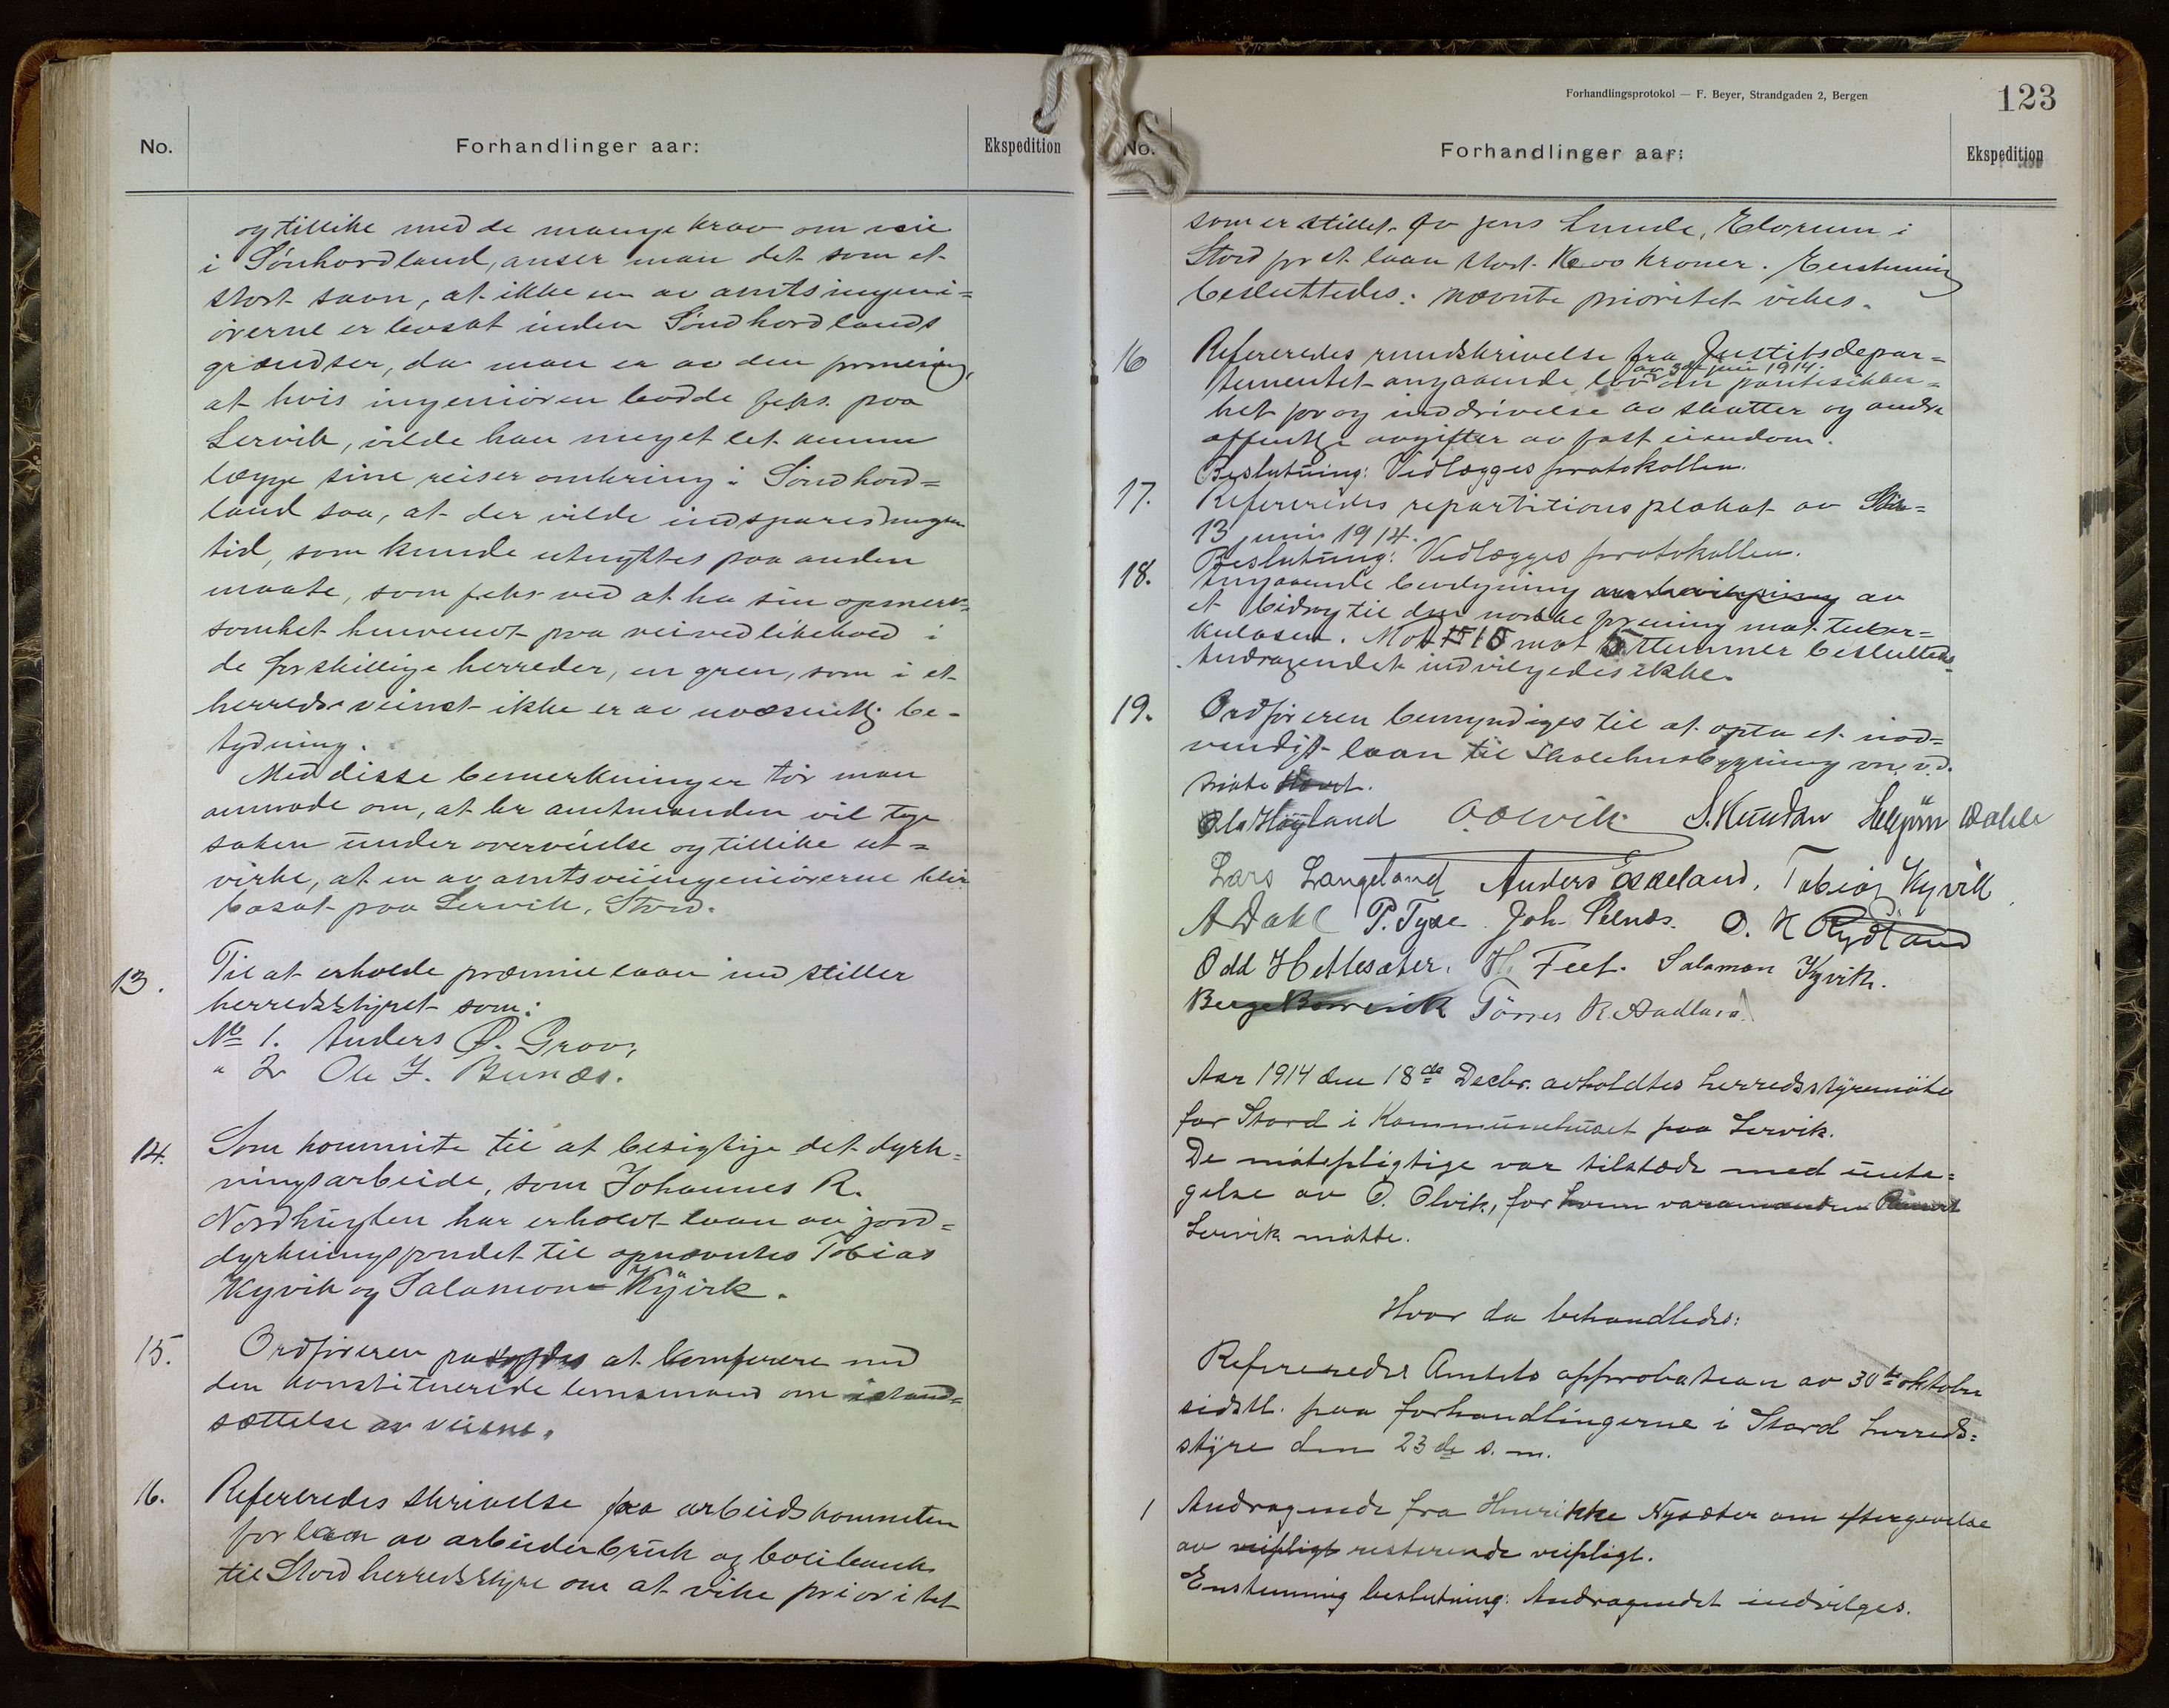 No.
Forhandlinger aar:
Ekspedition
og tillike med de mange krav om veie
i Sönhordland, anser man det som et
stort savn, at ikke en av amtsingeni=
örerne er bosat inden Söndhordlands
grændser, da man er av den formening,
at hvis ingeniören bodde feks. paa
Lervik, vilde han meget let kunne
lægge sine reiser omkring i Söndhord=
land saa, at der vilde indspares megen
tid, som kunde utnyttes paa anden
maate, som feks ved at ha sin opmerk=
somhet henvendt paa veivedlikehold i
de forskillige herreder, en gren, som i et
herreds veivæsen ikke er av uvæsentlig be-
tydning.
Med disse bemerkninger tör man
anmode om, at hr amtmanden vil tage
saken under overveielse og tillike ut=
virke, at en av amtsveiingeniörerne blir
bosat paa Lervik, Stord.
13. Til at erholde præmielaan indstiller
herredsstyret som:
No 1. Anders O. Grov,
" 2. Ole J. Bunæs.
14. Som kommite til at besigtige det dyrk=
ningsarbeide, som Johannes R.
Nordhuglen har erholdt laan av jord=
dyrkningsfondet til opnævntes Tobias
Kyvik og Salamon Kyvik.
15. Ordföreren paalagdes at konferere med
den konstituerede lensmand om istand=
sættelse av veiene.
16. Refereredes skrivelse fra arbeidskommiteen
for laan av arbeiderbruk og bolibank
til Stord herredsstyre om at vike prioritet
Forhandlingsprotokol — F. Beyer, Strandgaden 2, Bergen
123
No.
Forhandlinger aar:
Ekspedition
som er stillet for Jens Lunde, Eldorum i
Stord for et laan stort kroner. Enstemmig
besluttedes: nævnte prioritet vikes.
16 Refereredes rundskrivelse fra Justitsdepar=
av 3die juni 1914.
tementet angaaende lov om pantesikker=
het for og inddrivelse av skatter og andre
offentlige avgifter av fast eiendom.
Beslutning: Vedlægges protokollen.
17. Refereredes repartitions plakat av
13 juni 1914.
Beslutning: Vedlægges protokollen.
18. Angaaende bevilgning av
et bidrag til den norske forening mot tuber=
kulosen. Mot 15 mot 5 stemmer besluttedes
Andragendet indvilgedes ikke.
19. Ordföreren bemyndiges til at opta et nöd=
vendigt laan til skolehusbygning m. v. d.
möte hævet.
Ola Höyland O. Olvik S. Knutsen Helgjörn Dahle
Lars Langeland Anders Eskeland. Tobias Kyvik
A Dahl P. Tyse Joh. Selnes. O. K Rydland
Odd Hettesæter. H. Feet. Salamon Kyvik.
Berge Börrevik Törres K. Aadland
Aar 1914 den 18de Decbr. avholdtes herredsstyremöte
for Stord i Kommunehuset paa Lervik.
De mötepligtige var tilstæde med unta=
gelse av O. Olvik, for hvem varamanden Reinert
Lervik mötte.
Hvor da behandledes:
Refereredes Amtets approbation av 30te oktober
sidstl. paa forhandlingerne i Stord herreds=
styre den 23de s. m.
1 Andragende fra Henrikke Nysæter om eftergivelse
av veipligt resterende veipligt.
Enstemmig beslutning: Andragendet indvilges.